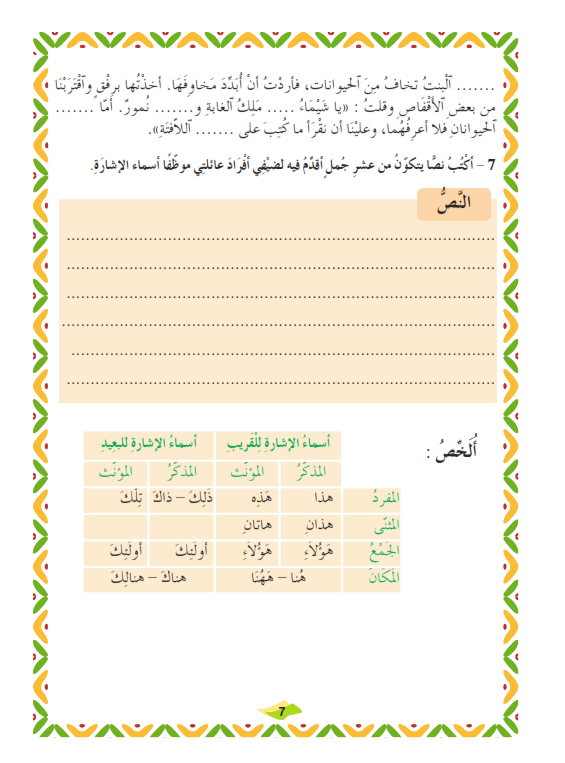 ....... ٱلْبِنتُ تخافُ مِنَ ٱلحيوانات، فأردْتُ أنْ أُبَدِّدَ مَخاوِفَهَا. أخذْتُها برِفْقٍ وٱقْتَرَبْنَا
من بعضِ ٱلأقْفَاصِ وقلتُ : «يا شَيْمَاءُ ..... مَلِكُ ٱلغابةِ و....... نُمورٌ. أمّا .......
ٱلحيواناتِ فلا أعرِفُهُما، وعليْنَا أن نقْرَأَ ما كُتِبَ على ....... ٱللاّفتَةِ».
7 – أكْتُبُ نصًّا يتكوّنُ من عشرِ جُملٍ أقدِّمُ فيه لضيْفِي أفْرَادَ عائلتِي موظِّفًا أسماء الإشارَةِ.
النَّصُّ
أُلَخِّصُ :
أسماءُ الإشارةِ لِلْقَريبِ أسماءُ الإشارةِ للبعِيدِ
المذكّرُ المؤنّث المذكّرُ المؤنّث
المفردُ هذا هَذِه ذَلِكَ – ذاكَ تِلْكَ
المثنّى هذانِ هاتانِ
الجَمْعُ هَؤُلاَءِ هَؤُلاَءِ أولَئِكَ أولَئِكَ
المَكَانَ هُنا – هَهُنَا هناكَ – هنالِكَ
7